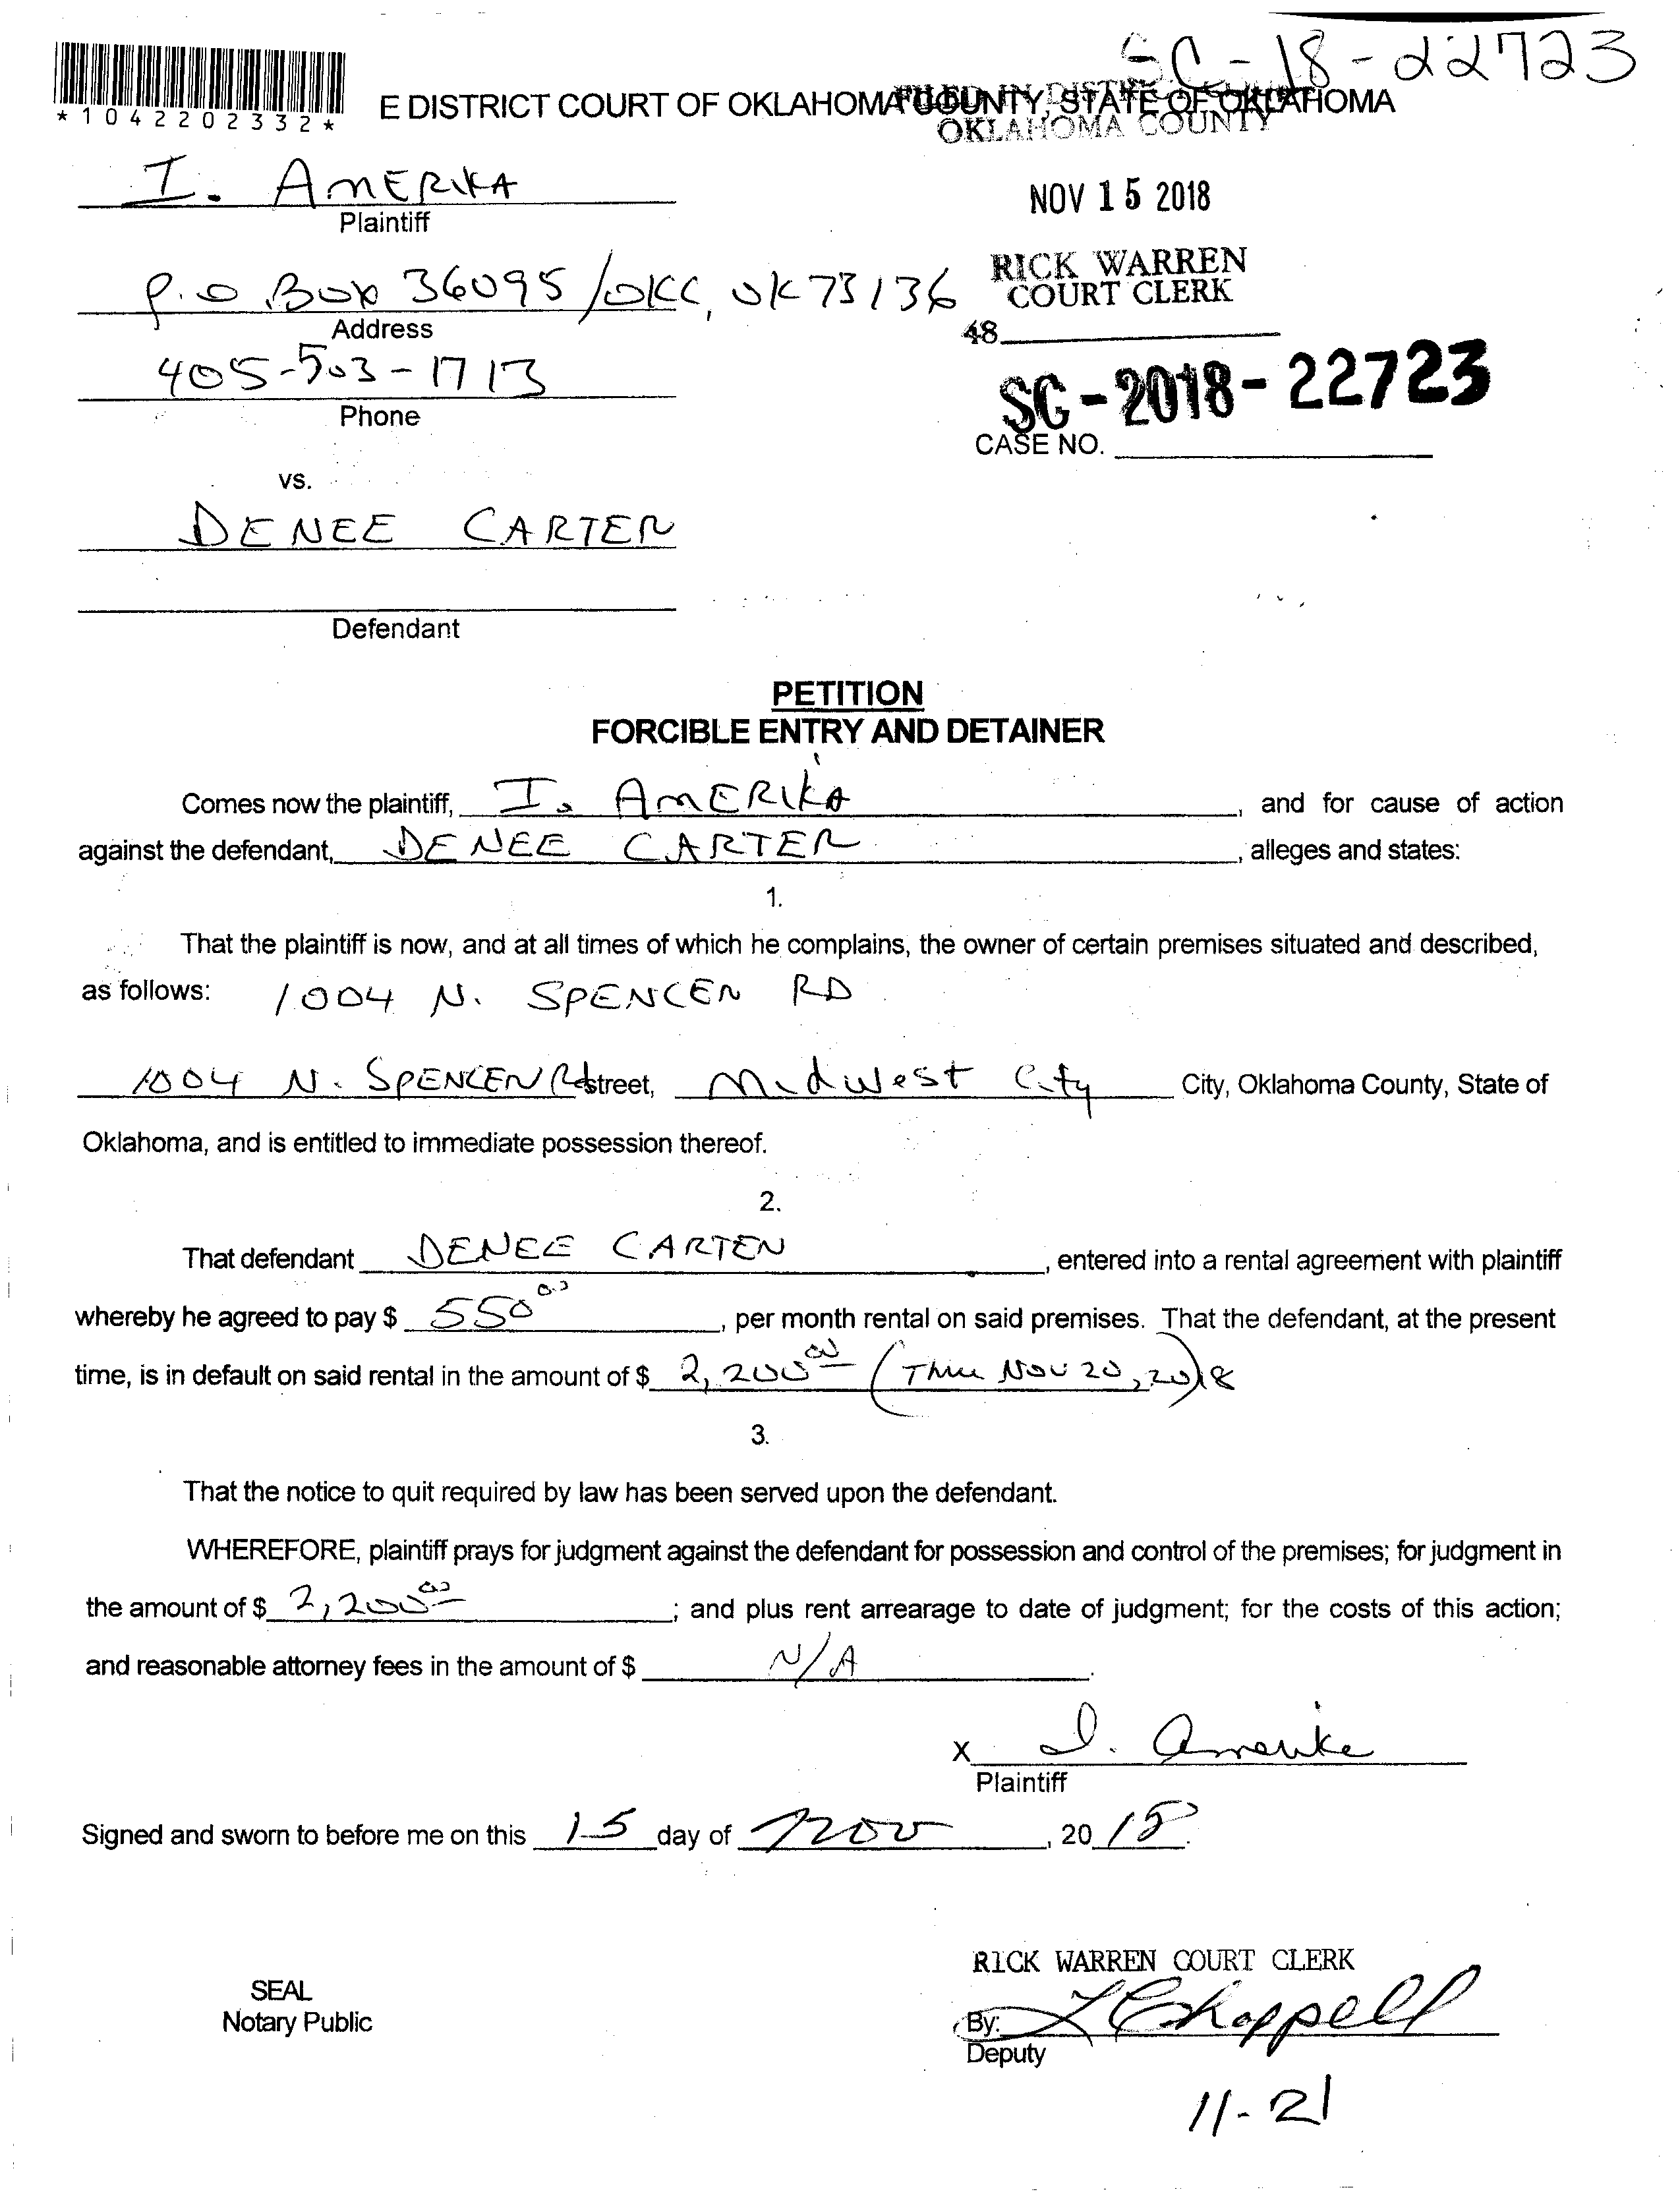 SC-18-22723
*1042202332*
E DISTRICT COURT OF OKLAHOMA COUNTY, STATE OF OKLAHOMA
FILED IN DISTRICT COURT
OKLAHOMA COUNTY
I. AMERIKA
Plaintiff
NOV 15 2018
P.O BOX 36095/OKC, OK 73136
Address
RICK WARREN
COURT CLERK
48
405-503-1713
Phone
SC-2018-22723
CASE NO.
vs.
DENEE CARTER
Defendant
PETITION
FORCIBLE ENTRY AND DETAINER
Comes now the plaintiff, I. AMERIKA, and for cause of action
against the defendant, DENEE CARTER, alleges and states:
1.
That the plaintiff is now, and at all times of which he complains, the owner of certain premises situated and described,
as follows: 1004 N. SPENCER RD
1004 N. SPENCER Rd street, Midwest City City, Oklahoma County, State of
Oklahoma, and is entitled to immediate possession thereof.
2.
That defendant DENEE CARTER, entered into a rental agreement with plaintiff
whereby he agreed to pay $ 550 00, per month rental on said premises. That the defendant, at the present
time, is in default on said rental in the amount of $ 2,200 00 (Thru Nov 20, 2018)
3.
That the notice to quit required by law has been served upon the defendant.
WHEREFORE, plaintiff prays for judgment against the defendant for possession and control of the premises; for judgment in
the amount of $ 2,200 00; and plus rent arrearage to date of judgment; for the costs of this action;
and reasonable attorney fees in the amount of $ N/A.
X I. Amerika
Plaintiff
Signed and sworn to before me on this 15 day of Nov, 2018.
RICK WARREN COURT CLERK
SEAL
Notary Public
By: L Chappell
Deputy
11-21